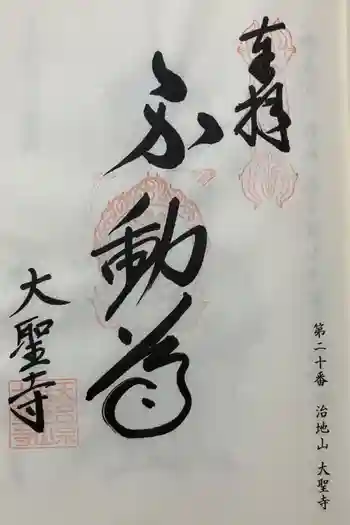 奉拝
不動尊
大聖寺
第二十番 治地山 大聖寺